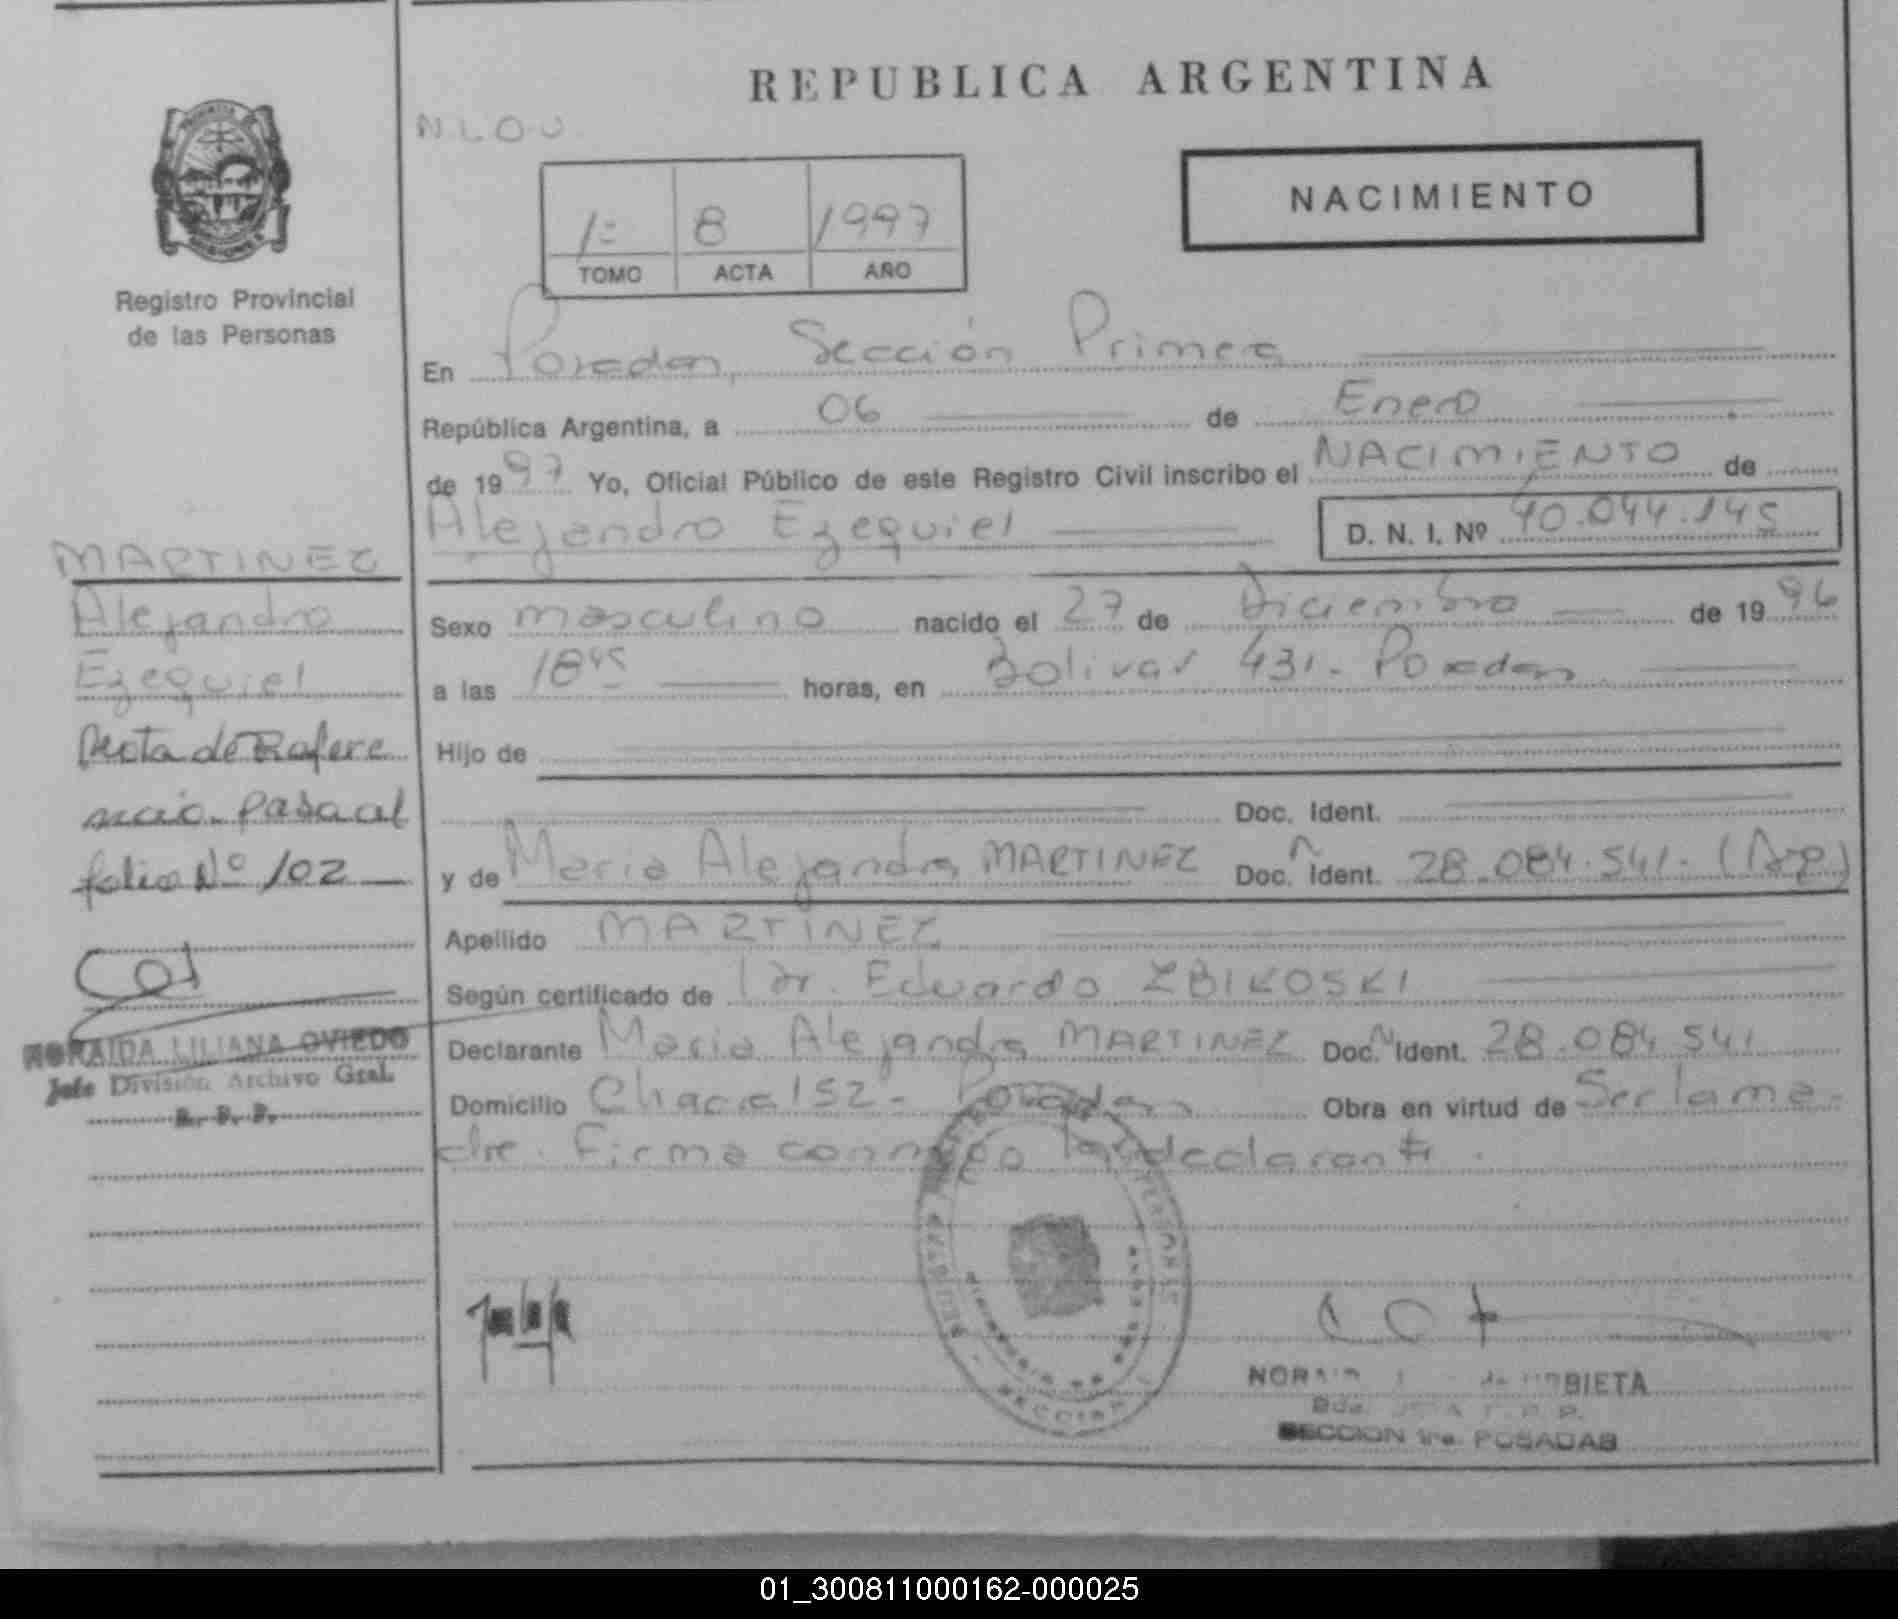 REPUBLICA ARGENTINA
N.L.O.U.
NACIMIENTO
1º 8 1997
TOMO ACTA AÑO
Registro Provincial
de las Personas
En Posadas, Sección Primera
República Argentina, a 06 de Enero
de 1997 Yo, Oficial Público de este Registro Civil inscribo el NACIMIENTO de
Alejandro Ezequiel D. N. I. Nº 40.044.145
MARTINEZ
Alejandro
Ezequiel
Nota de Refere
ncia. Pasa al
folio Nº 102
NORAIDA LILIANA OVIEDO
Jefe División Archivo Gral.
R. P. P.
Sexo masculino nacido el 27 de Diciembre de 1996
a las 18 45 horas, en Bolivar 431 - Posadas
Hijo de
Doc. Ident.
y de Maria Alejandra MARTINEZ Doc. Ident. 28.084.541. (Arg)
Apellido MARTINEZ
Según certificado de Dr. Eduardo ZBIKOSKI
Declarante Maria Alejandra MARTINEZ Doc. Ident. 28.084.541
Domicilio Chacra 152 - Posadas Obra en virtud de Ser la ma-
dre. Firma conmigo la declarante.
SECCION
BIETA
SECCION 1ra. POSADAS
01_300811000162-000025